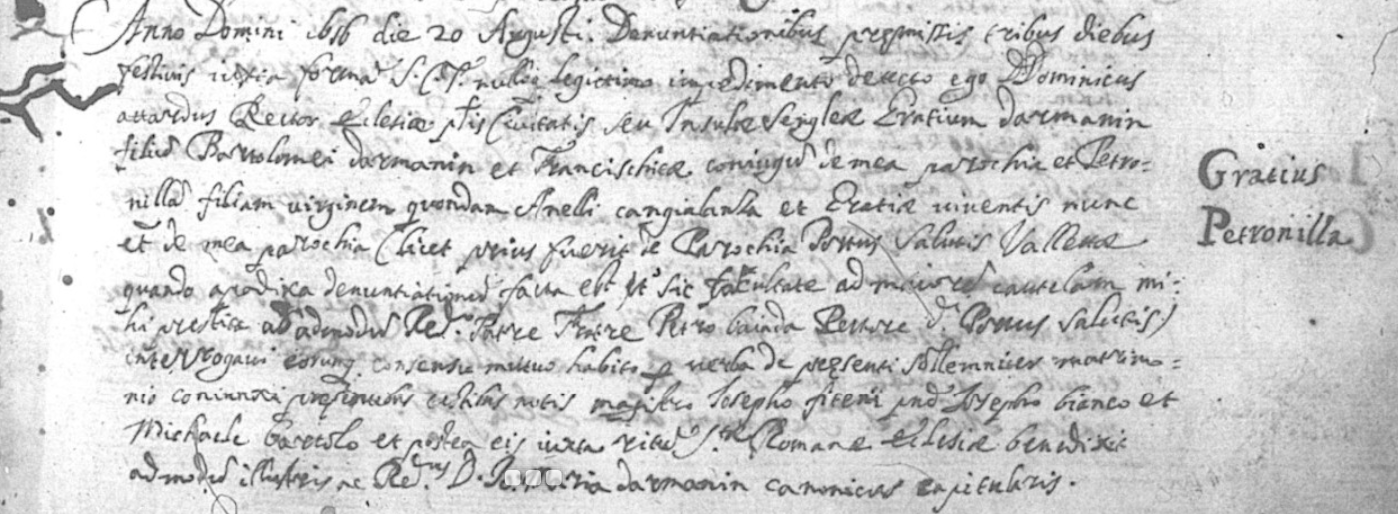 Anno Domini 1656 die 20 Augusti. Denuntiationibus premissis tribus diebus
festivis iuxta formā S. C. T. nulloq legictimo impedimento detecto ego Dominicus
Rector Ecclesiæ Civitatis seu Insulæ Sengleæ Gratium darmanin
filiū Bartolomei darmanin et Francischæ coniugū de mea parochia et Petro=
nillā filiam virginem quondam Anelli cangialanza et Gratiæ viventis nunc
et de mea parochia (licet prius fuerit de Parochia Portus Salutis Vallettæ
quando apodixa denuntiationū facta est et sic facultate ad maiorē cautelam mi=
hi prestita ab admodū Red. Patre Fratre Petro Rettore d. Portus Salutis)
interrogavi eorunq consensu mutuo habito p verba de presenti sollemniter matrimo=
nio coniunxi presentibus testibus notis magistro Iosepho Iosepho bianco et
Michaele bartolo et postea eis iuxta ritū S. Romanæ Ecclesiæ benedixit
admodū illustris ac Red.us D. darmanin canonicus capitularis.
Gratius
Petronilla